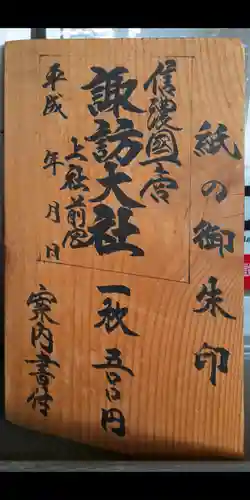 紙の御朱印
信濃國一之宮
諏訪大社
上社前宮
平成 年 月 日
一枚 五百円
案内書付